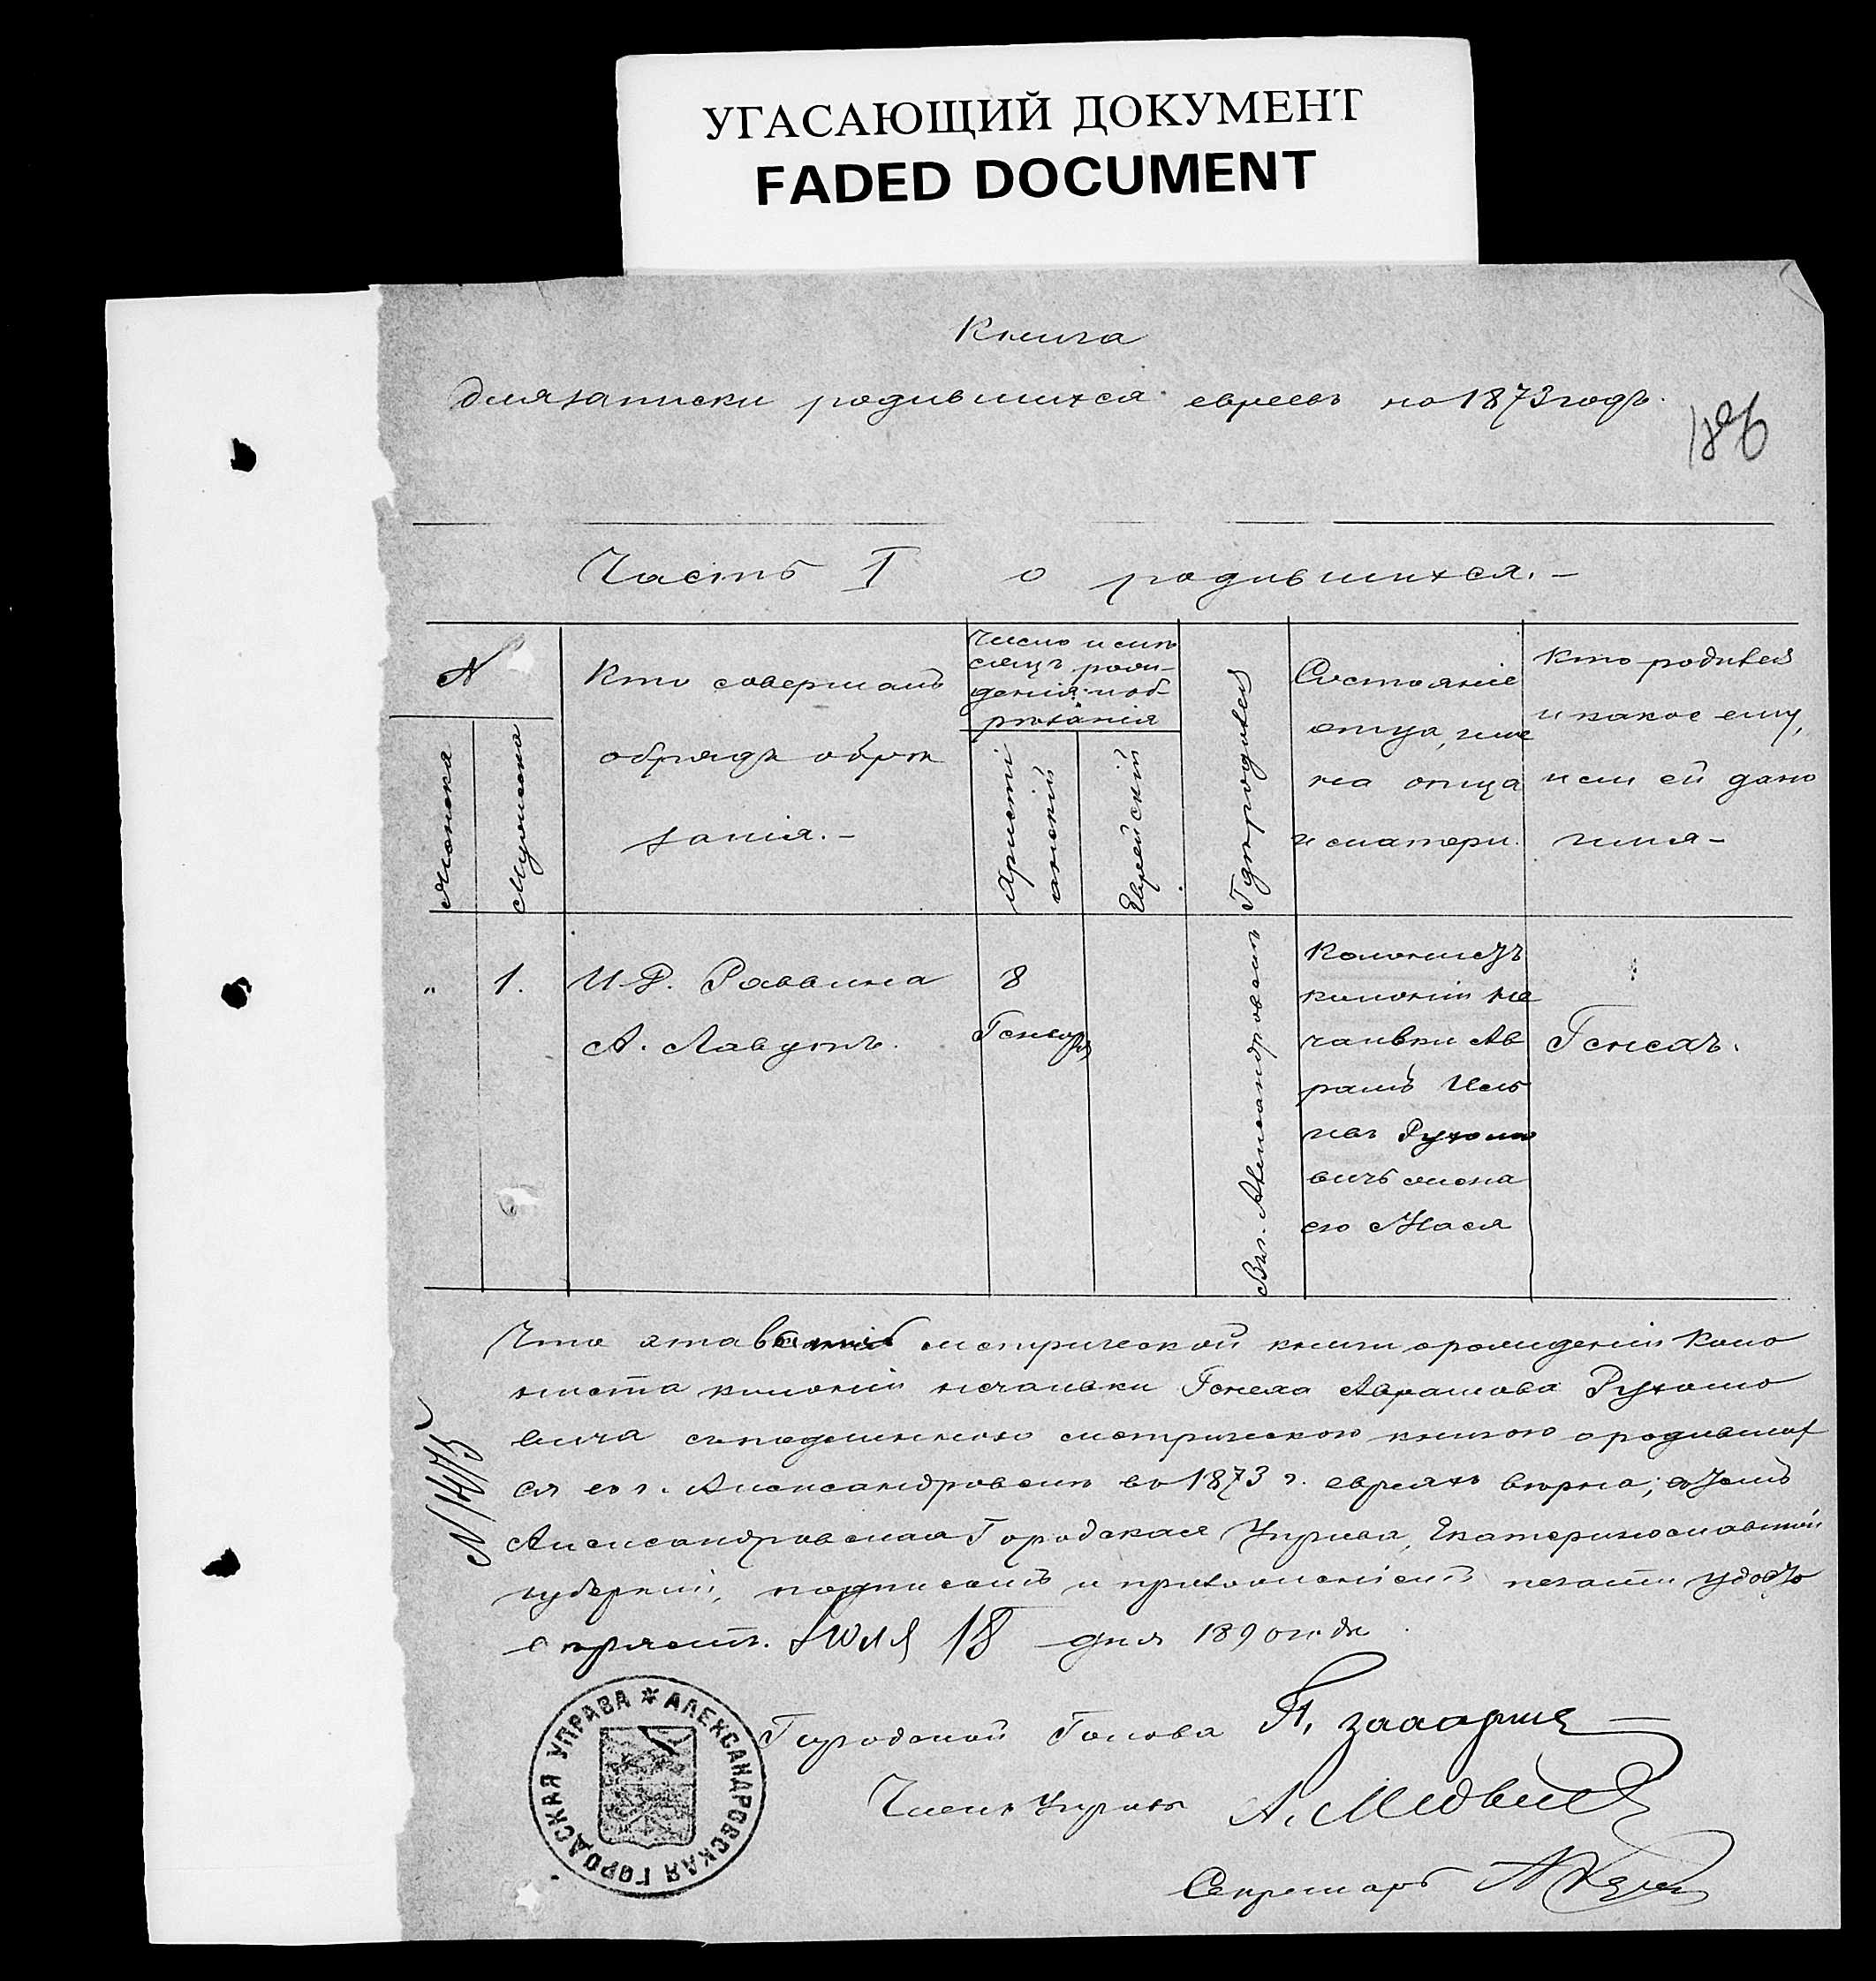 УГАСАЮЩИЙ ДОКУМЕНТ
FADED DOCUMENT
Книга
для записки родившихся евреевъ на 1873 годъ.
186
Часть I о родившихся. –
№
Женска
Мужеска
Кто совершалъ
обрядъ обрѣ
занія. –
Число и мѣ
сяцъ рож-
денія и об-
рѣзанія
Христі
анскій
Еврейскій
Гдѣ родился
Состояніе
отца, име
на отца
и матери.
Кто родился
и какое ему,
или ей дано
имя –
"
1.
И. Д. Раввина
А. Лавутъ.
8
Генваря
Въ г. Александровскѣ
Колонистъ
колоніи Не
чаевки Ав
рамъ Иль
евъ Рухоло
вичъ жена
его Хася
Генехъ.
Что эта выпись метрической книги о рожденіи Коло
ниста колоніи Нечаевки Генеха Аврамова Рухоло
вича съ подлинною метрическою книгою о родивших
ся въ г. Александровскѣ въ 1873 г. евреяхъ вѣрна, въ томъ
Александровская Городская Управа, Екатеринославской
губерніи, подписомъ и приложеніемъ печати удосто
вѣряетъ. Іюля 18 дня 1890 года
№ 1475
Городской Голова
Членъ Управы
Секретарь
АЛЕКСАНДРОВСКАЯ ГОРОДСКАЯ УПРАВА